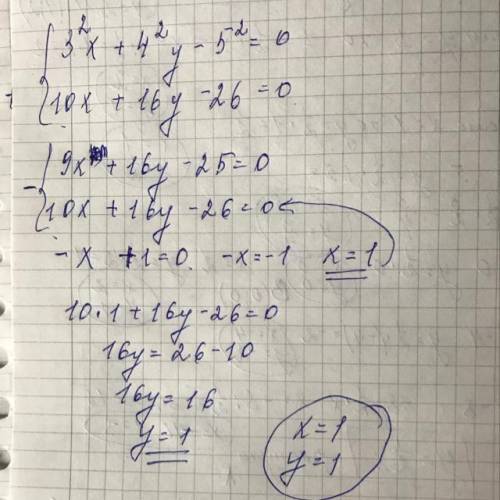 3²x + 4²y - 5⁻² = 0
10x + 16y - 26 = 0
9x + 16y - 25 = 0
10x + 16y - 26 = 0
- x + 1 = 0 - x = - 1 x = 1
10 · 1 + 16y - 26 = 0
16y = 26 - 10
16y = 16
y = 1
x = 1
y = 1